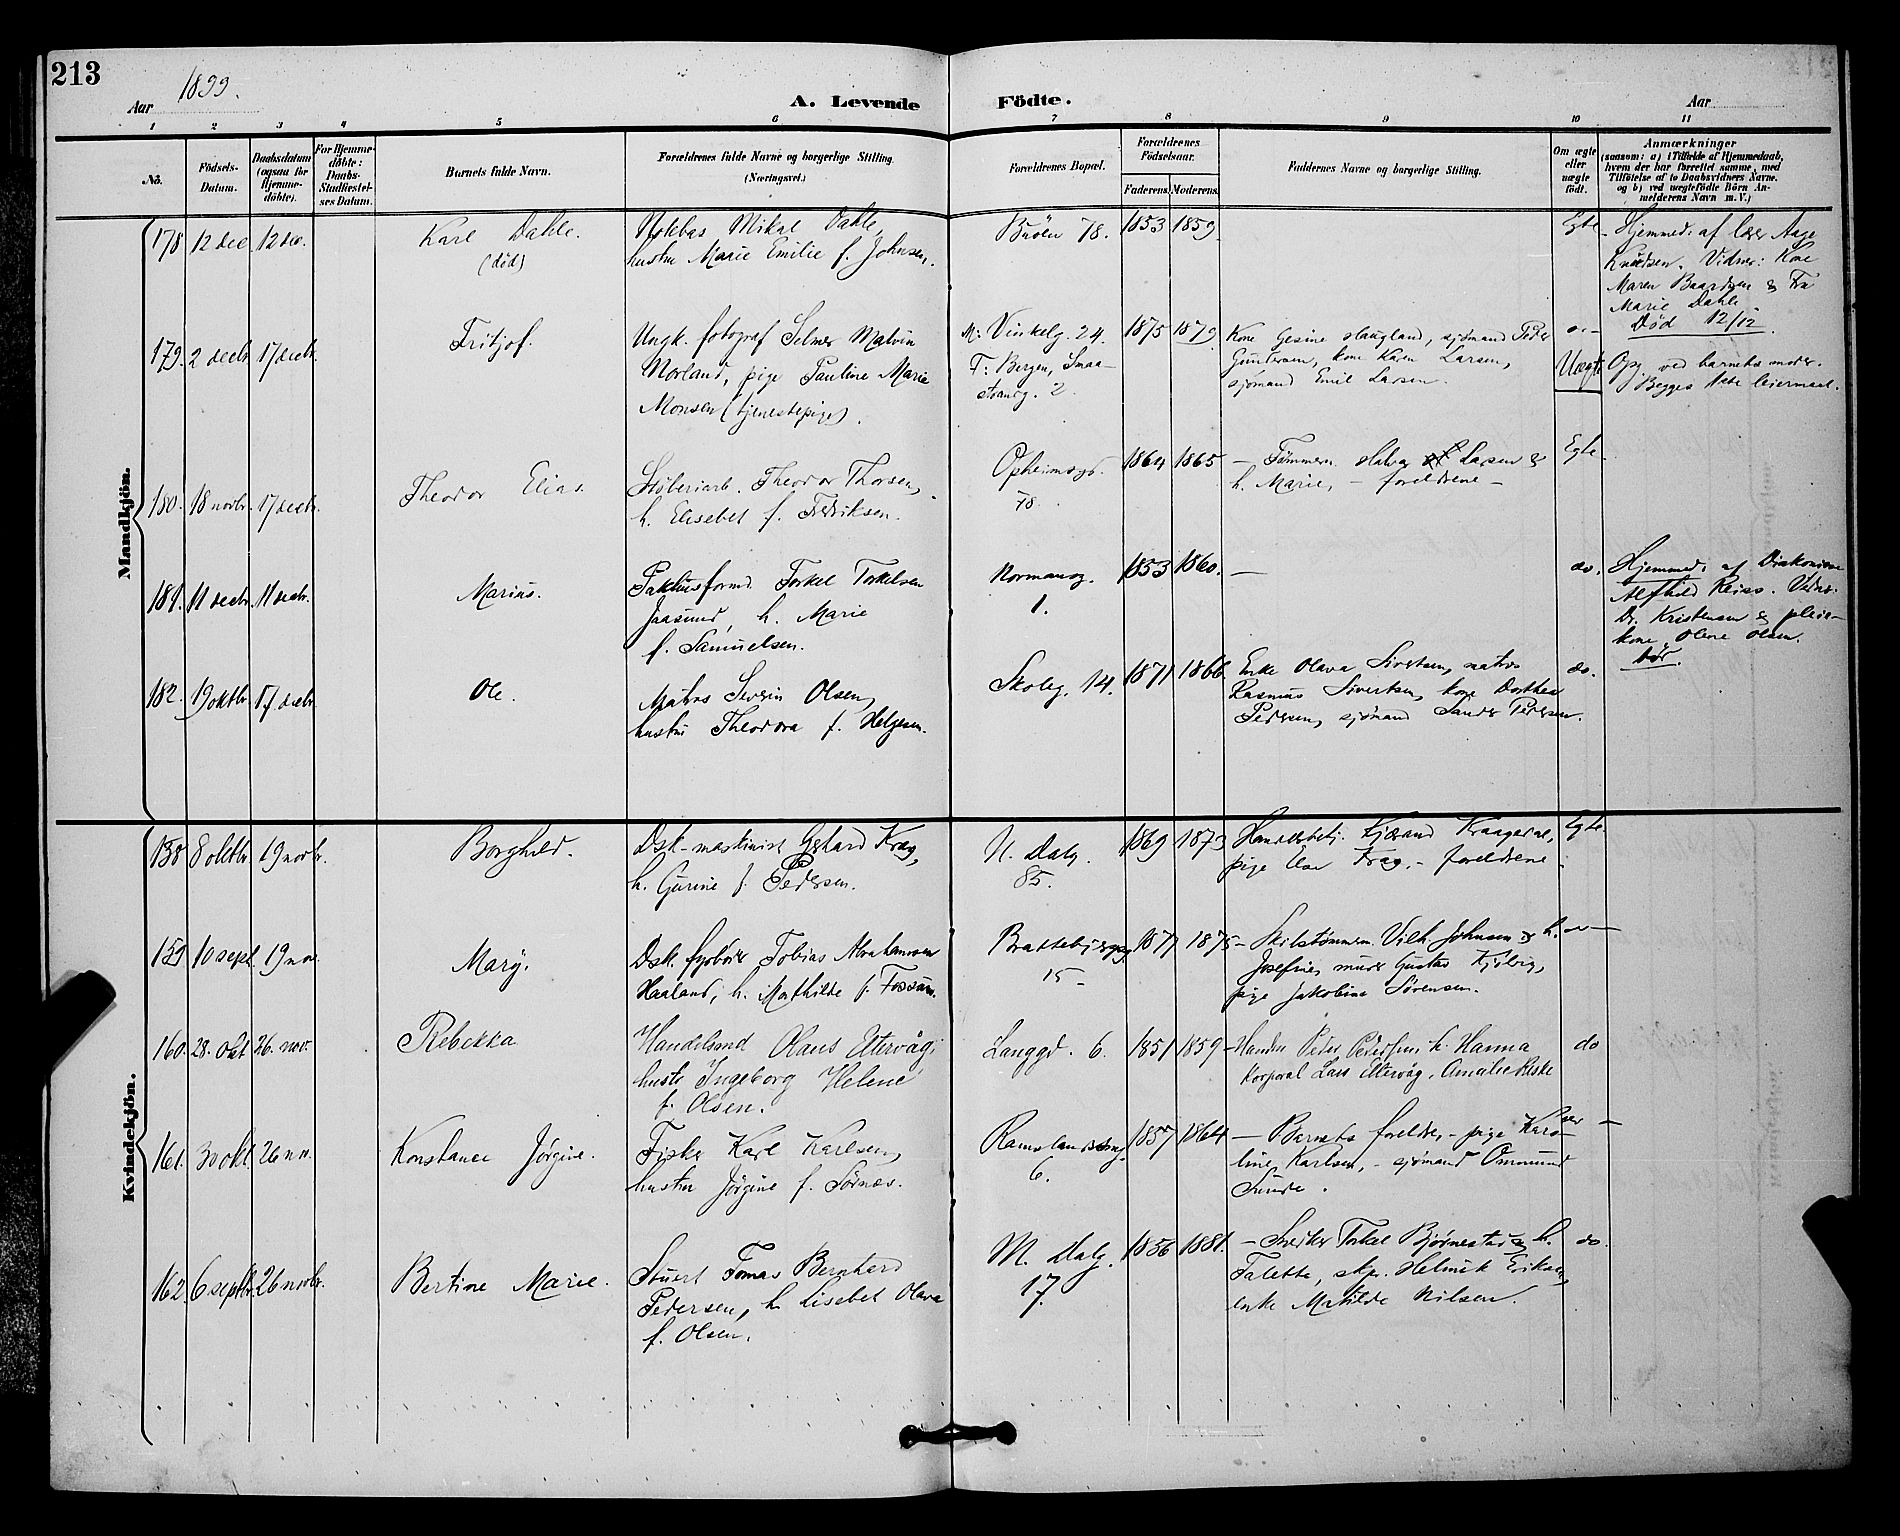 213
Aar 1899.
A. Levende Födte.
Aar
1 2 3 4 5 6 7 8 9 10 11
No.
Födsels-
Datum.
Daabsdatum
(ogsaa for
Hjemme-
döbte).
For Hjemme-
döbte:
Daabs-
Stadfæstel-
ses Datum.
Barnets fulde Navn.
Forældrenes fulde Navne og borgerlige Stilling.
(Næringsvei.)
Forældrenes Bopæl.
Forældrenes
Födselsaar.
Faderens. Moderens.
Faddernes Navne og borgerlige Stilling.
Om ægte
eller
uægte
födt.
Anmærkninger
(saasom: a) i Tilfælde af Hjemmedaab,
hvem der har forrettet samme, med
Tilföielse af to Daabsvidners Navne.
og b) ved uægtefödte Börn An-
melderens Navn m. V.)
Mandkjön.
178 12 dec 12 dec.
Karl Dahle.
(død)
Notebas Mikal Dahle,
hustru Marie Emilie f. Johnsen.
Buöen 78.
1853 1859.
Egte
Hjemmed. af læge Aage
Knudsen. Vidner: Kone
Maren Baardsen & Fru
Marie Dahle
Død 12/12.
179. 2 decbr. 17 decbr.
Fritjof.
Ungk. fotograf Selmer Malvin
Morland, pige Pauline Marie
Monsen (tjenestepige).
M: Vinkelg. 24.
F: Bergen, Smaa-
strandg. 2.
1875 1879
Kone Gesine Haugland, sjømand Peder
Gundersen, kone Karen Larsen,
sjømand Emil Larsen.
Uægte
Opg. ved barnets moder.
Begges 1ste leiermaal.
180. 18 novbr. 17 decbr.
Theodor Elias.
Støberiarb. Theodor Thorsen,
h. Elisebet f. Fredriksen.
Opheimsgd.
78.
1864 1865
– Tømmerm. Halvor Larsen &
h. Marie, – foreldrene –
Egte
181. 11 decbr. 11 decbr.
Marius.
Pakhusformd. Torkel Torkelsen
Jaasund, h. Marie
f. Samuelsen.
Normansg.
1.
1853 1860.
—
do.
Hjemmed. af Diakonisse
Alfhild Reiss. Vidner:
Dr. Kristensen & pleie-
kone Olene Olsen.
død.
182. 19 oktbr. 17 decbr.
Ole.
Matros Severin Olsen,
hustru Theodora f. Helgesen.
Skoleg. 14.
1871 1866.
Enke Olava Sivertsen, matros
Rasmus Sivertsen, kone Dorthea
Pedersen, sjømand Sander Pedersen.
do.
Kvindekjön.
158 8 oktbr. 19 novbr.
Borghild.
Dsk-maskinist Gerhard Krag,
h. Gurine f. Pedersen.
N. Dalg.
85.
1869 1873
Handelsbetj. Kjærand Kraagerøe,
pige Else Krag, – foreldrene –
Egte
159 10 sept. 19 nov.
Mary.
Dsk. fyrbøder Tobias Abrahamsen
Haaland, h. Mathilde f. Fossum.
Brattebjergg.
15 –
1877 1875
– Skibstømmerm. Vilh. Johnsen & h.
Josefine, murer Gustav Kjølvig,
pige Jakobine Sørensen.
160. 28. okt 26. nov.
Rebekka
Handelsmd Olaus Ettervåg,
hustr Ingeborg Helene
f. Olsen.
Langgd. 6.
1851 1859
– Handm Peder Pedersen, h. Hanna
Korporal Lars Ettervåg, Amalie Riske
do
161. 30 okt. 26 nov.
Konstance Jørgine.
Fisker Karl Karlsen,
hustru Jørgine f. Sørnæs.
Ramslandsg.
6.
1857 1864
– Barnets foreldre, – pige Karo-
line Karlsen, – sjømand Ommund
Sunde.
162. 6 septbr. 26 novbr.
Bertine Marie.
Stuert Tomas Bernhard
Pedersen, h. Lisebet Olava
f. Olsen.
M. Dalg.
17.
1856 1881.
– Snedker Torkel Bjørnestad & h.
Talette, skp. Helmik Eriksen,
enke Matilde Nilsen.
do.